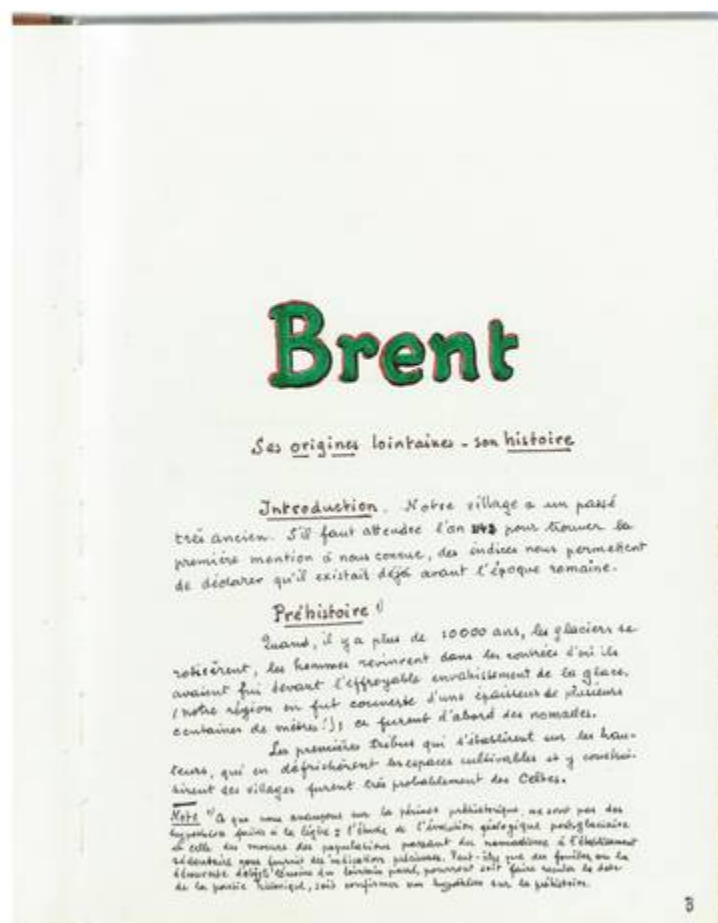 Brent
Ses origines lointaines - son histoire
Introduction. Notre village a un passé
très ancien. S'il faut attendre l'an pour trouver la
première mention à nous connue, des indices nous permettent
de déclarer qu'il existait déjà avant l'époque romaine.
Préhistoire 1)
Quand, il y a plus de 10000 ans, les glaciers se
retirèrent, les hommes revinrent dans les contrées d'où ils
avaient fui devant l'effroyable envahissement de la glace,
(notre région en fut couverte d'une épaisseur de plusieurs
centaines de mètres!); ce furent d'abord des nomades.
Les premières tribus qui s'établirent sur les hau-
teurs, qui en défrichèrent les espaces cultivables et y construi-
sirent des villages furent très probablement des Celtes.
Note 1) Ce que nous avançons sur la période préhistorique, ne sont pas des
hypothèses faites à la légère; l'étude de l'évolution géologique postglaciaire
et celle des moeurs des populations passant du nomadisme à l'établissement
sédentaire nous fournit des indications précieuses. Peut-être que des fouilles ou la
découverte d'objets témoins du lointain passé, pourront soit faire reculer la date
de la partie historique, soit confirmer nos hypothèses sur la préhistoire.
3